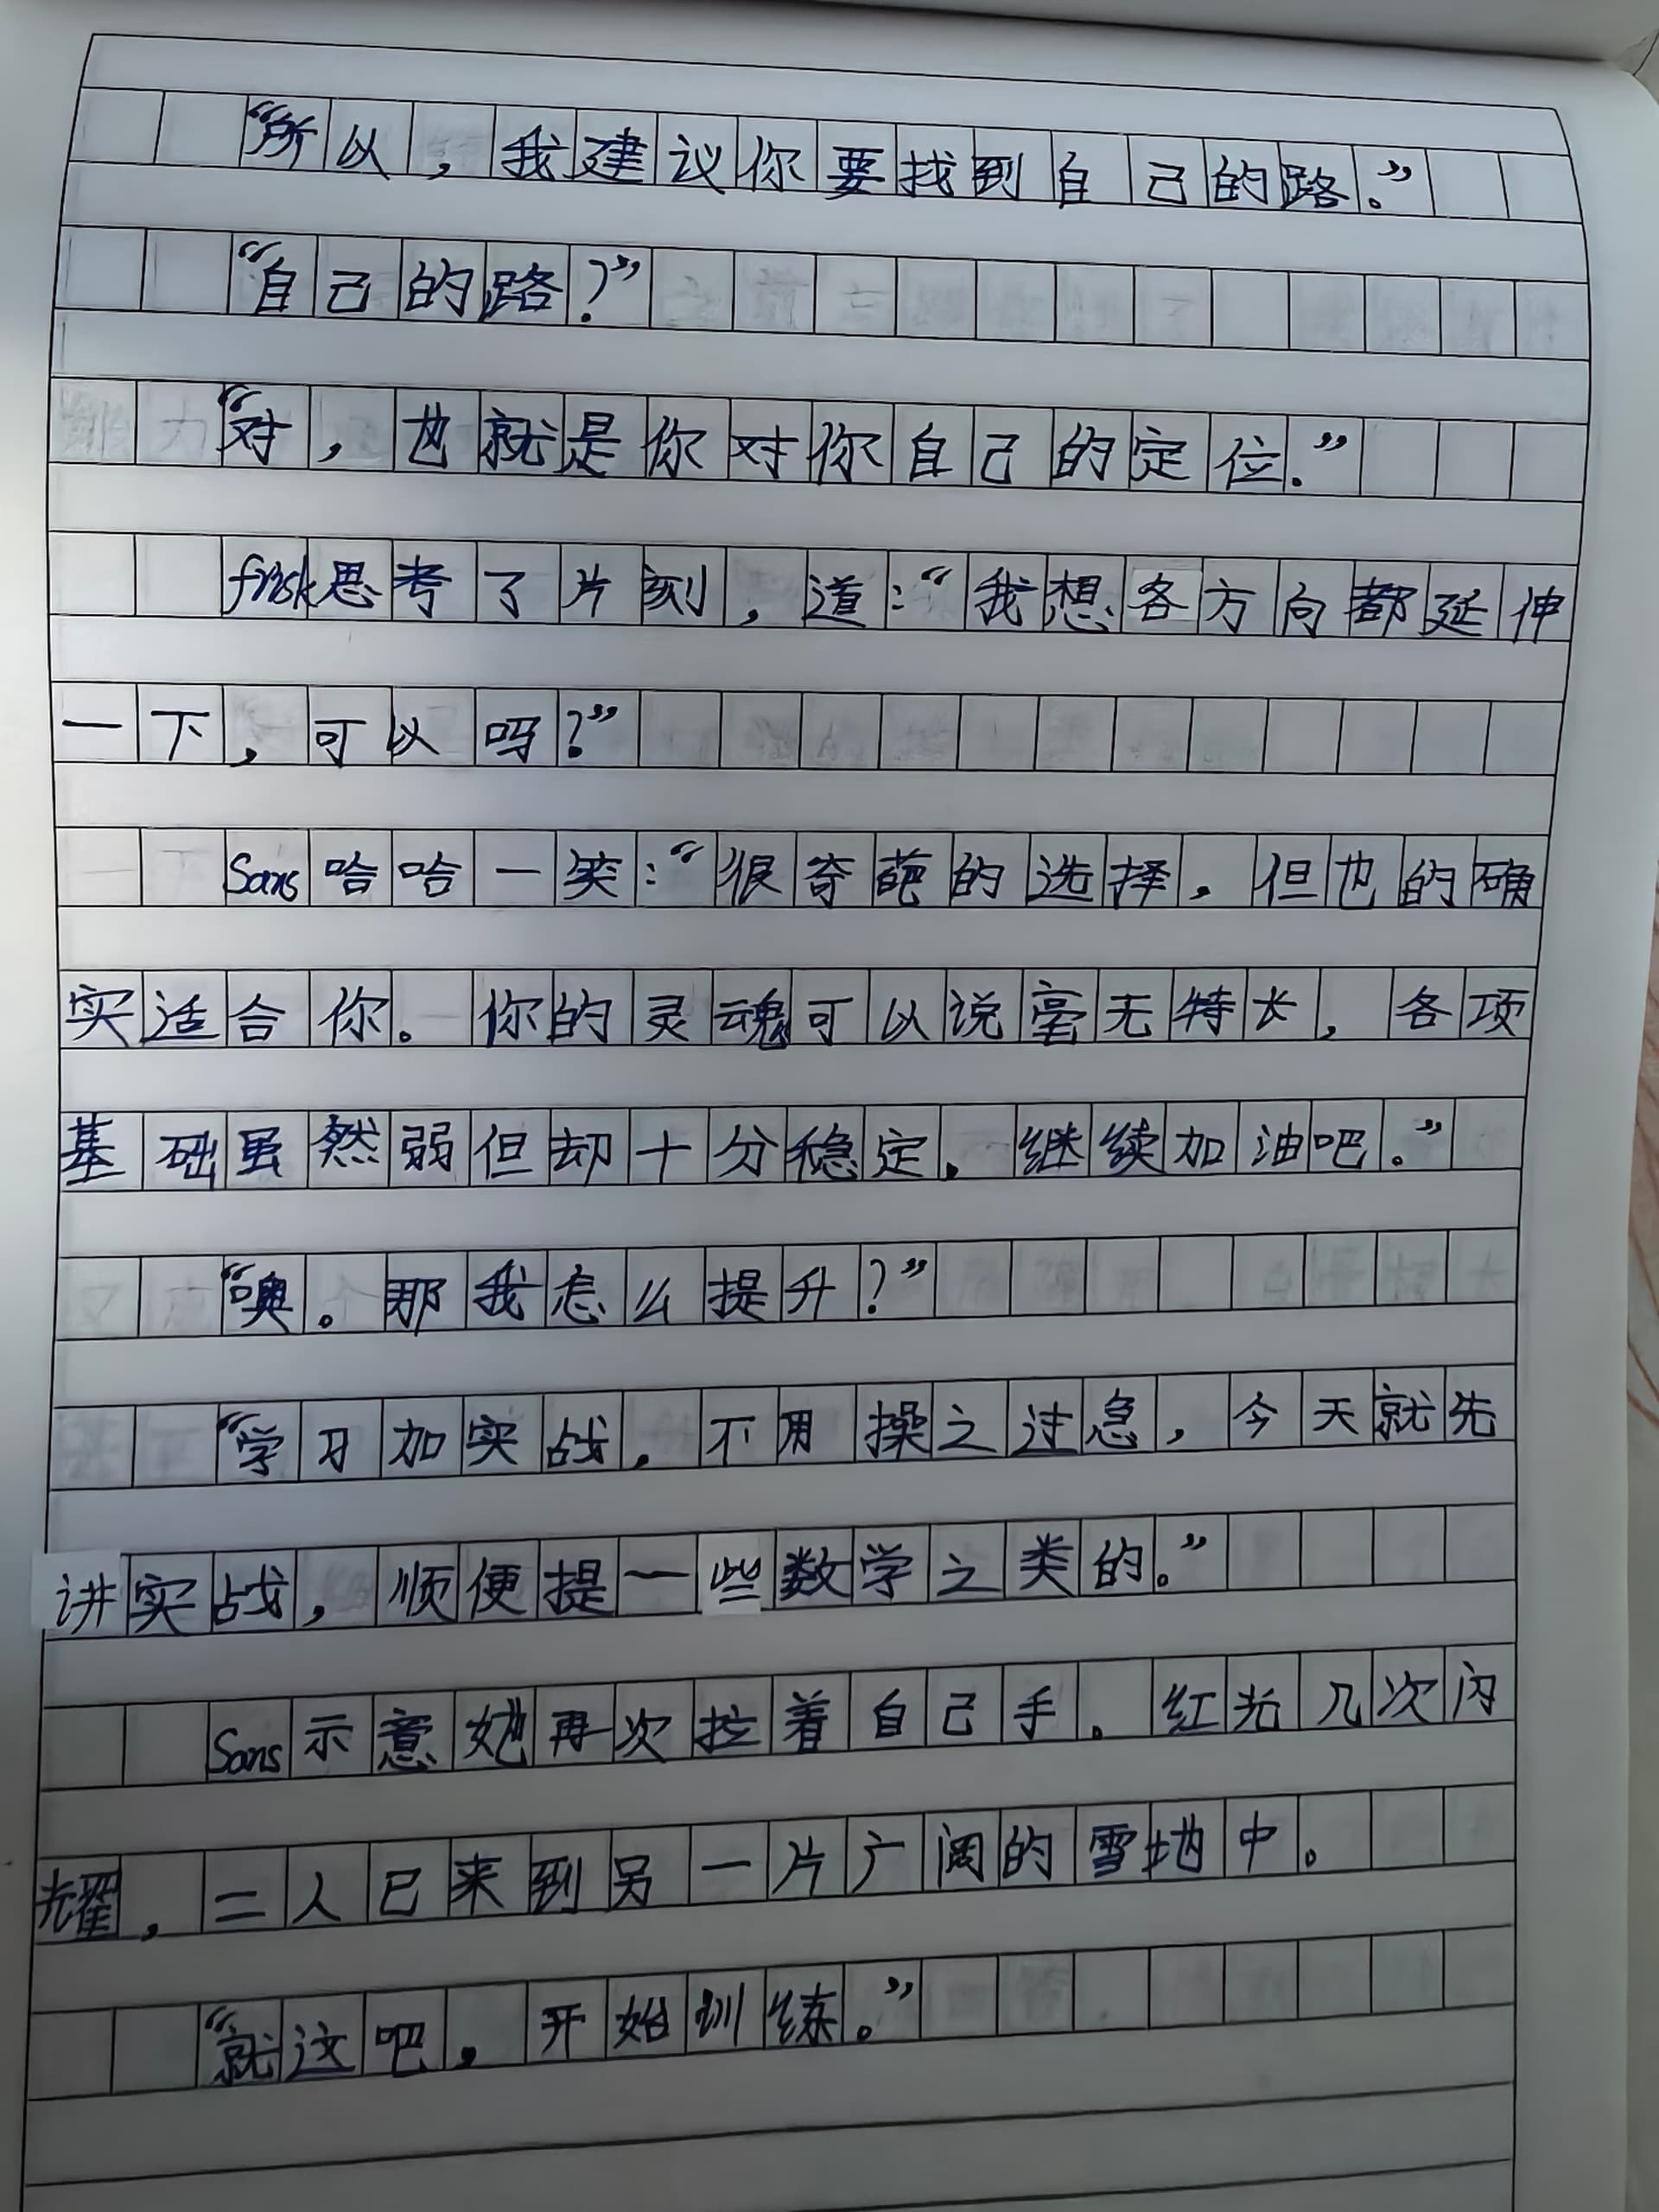 “所以，我建议你要找到自己的路。”
“自己的路？”
“对，也就是你对你自己的定位.”
frisk思考了片刻，道：“我想各方向都延伸
一下，可以吗？”
Sans哈哈一笑：“很奇葩的选择，但也的确
实适合你。你的灵魂可以说毫无特长，各项
基础虽然弱但却十分稳定，继续加油吧。”
“噢。那我怎么提升？”
“学习加实战，不用操之过急，今天就先
讲实战，顺便提一些数学之类的。”
Sans示意她再次拉着自己手。红光几次闪
耀，二人已来到另一片广阔的雪地中。
“就这吧，开始训练。”